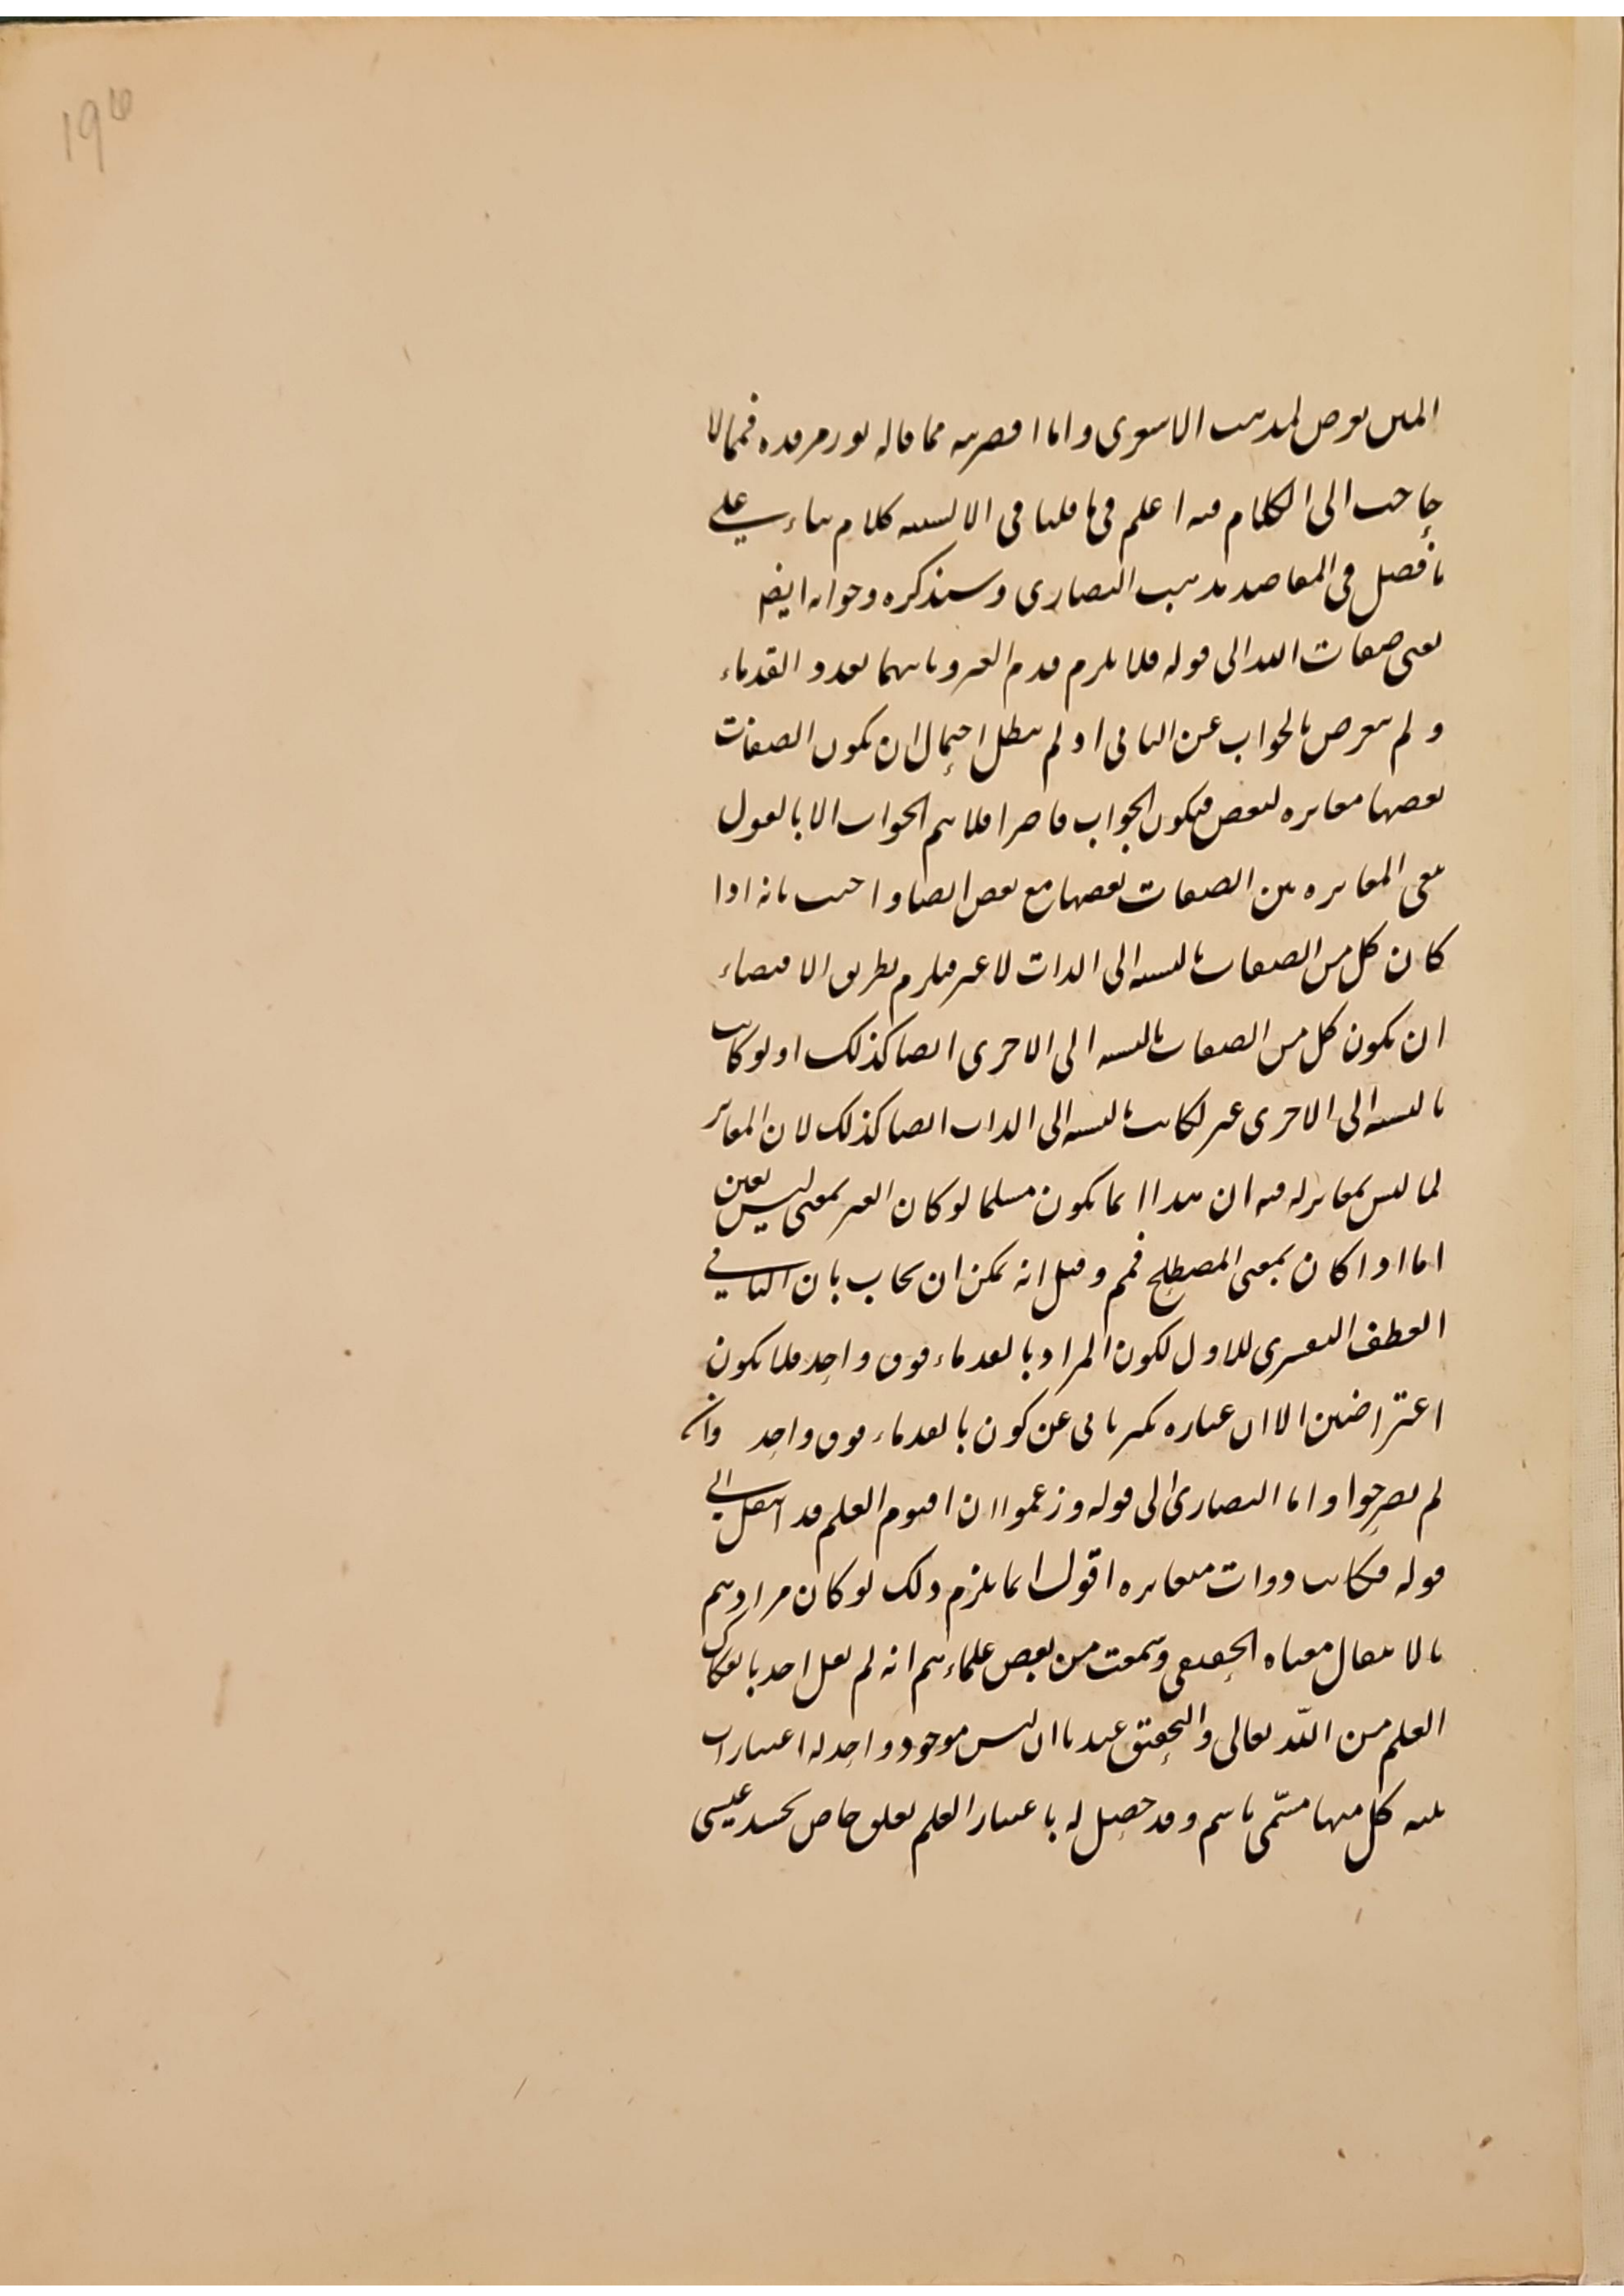 ۱۹۵
المتن تعرض لمذهب الاشعرى واما اقصريه مما قاله نور مرقده فمما لا
حاجب الى الكلام فيه اعلم فى ما قلنا فى الالسنه كلام بناء على
ما فصل فى المقاصد مذهب النصارى وسنذكره وجوابه ايضا
يعنى صفات الله الى قوله فلا يلزم قدم الغير وثانيهما تعدد القدماء
ولم يتعرض بالجواب عن الثانى اذ لم يبطل احتمال ان يكون الصفات
بعضها مغايره لبعض فيكون الجواب قاصرا فلا يتم الجواب الا بالقول
بنفى المغايره بين الصفات بعضها مع بعض ايضا واجيب بانه اذا
كان كل من الصفات بالنسبه الى الذات لا غير فيلزم بطريق الاقتضاء
ان يكون كل من الصفات بالنسبه الى الاخرى ايضا كذلك اذ لو كانت
بالنسبه الى الاخرى غير لكانت بالنسبه الى الذات ايضا كذلك لان المغاير
لما ليس بمغاير له فيه ان هذا انما يكون مسلما لو كان الغير بمعنى ليس بعين
اما اذا كان بمعنى المصطلح فمم وقيل انه يمكن ان يجاب بان الثانى
العطف التفسرى للاول لكون المراد بالقدماء فوق واحد فلا يكون
اعتراضين الا ان عباره تكثر تابى عن كون بالقدماء فوق واحد وان
لم يصرحوا واما النصارى الى قوله وزعموا ان اقنوم العلم قد انتقل الى
قوله فكانت ذوات متغايره اقول انما يلزم ذلك لو كان مرادهم
بالانتقال معناه الحقيقى وسمعت من بعض علماءهم انه لم يقل احد بانفكاك
العلم من الله تعالى والتحقيق عندنا ان ليس موجود واحد له اعتبارات
ثلثه كل منها مسمى باسم وقد حصل له باعتبار العلم تعلق خاص بجسد عيسى